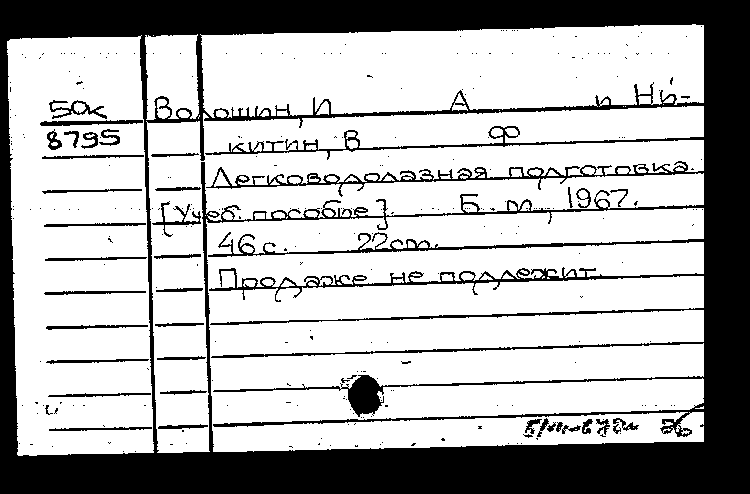 50к Волошин, И А и Ни-
8795 китин, В Ф
Легководолазная подготовка.
[Учеб. пособие]. Б. м., 1967.
46 с. 22 см.
Продаже не подлежит.